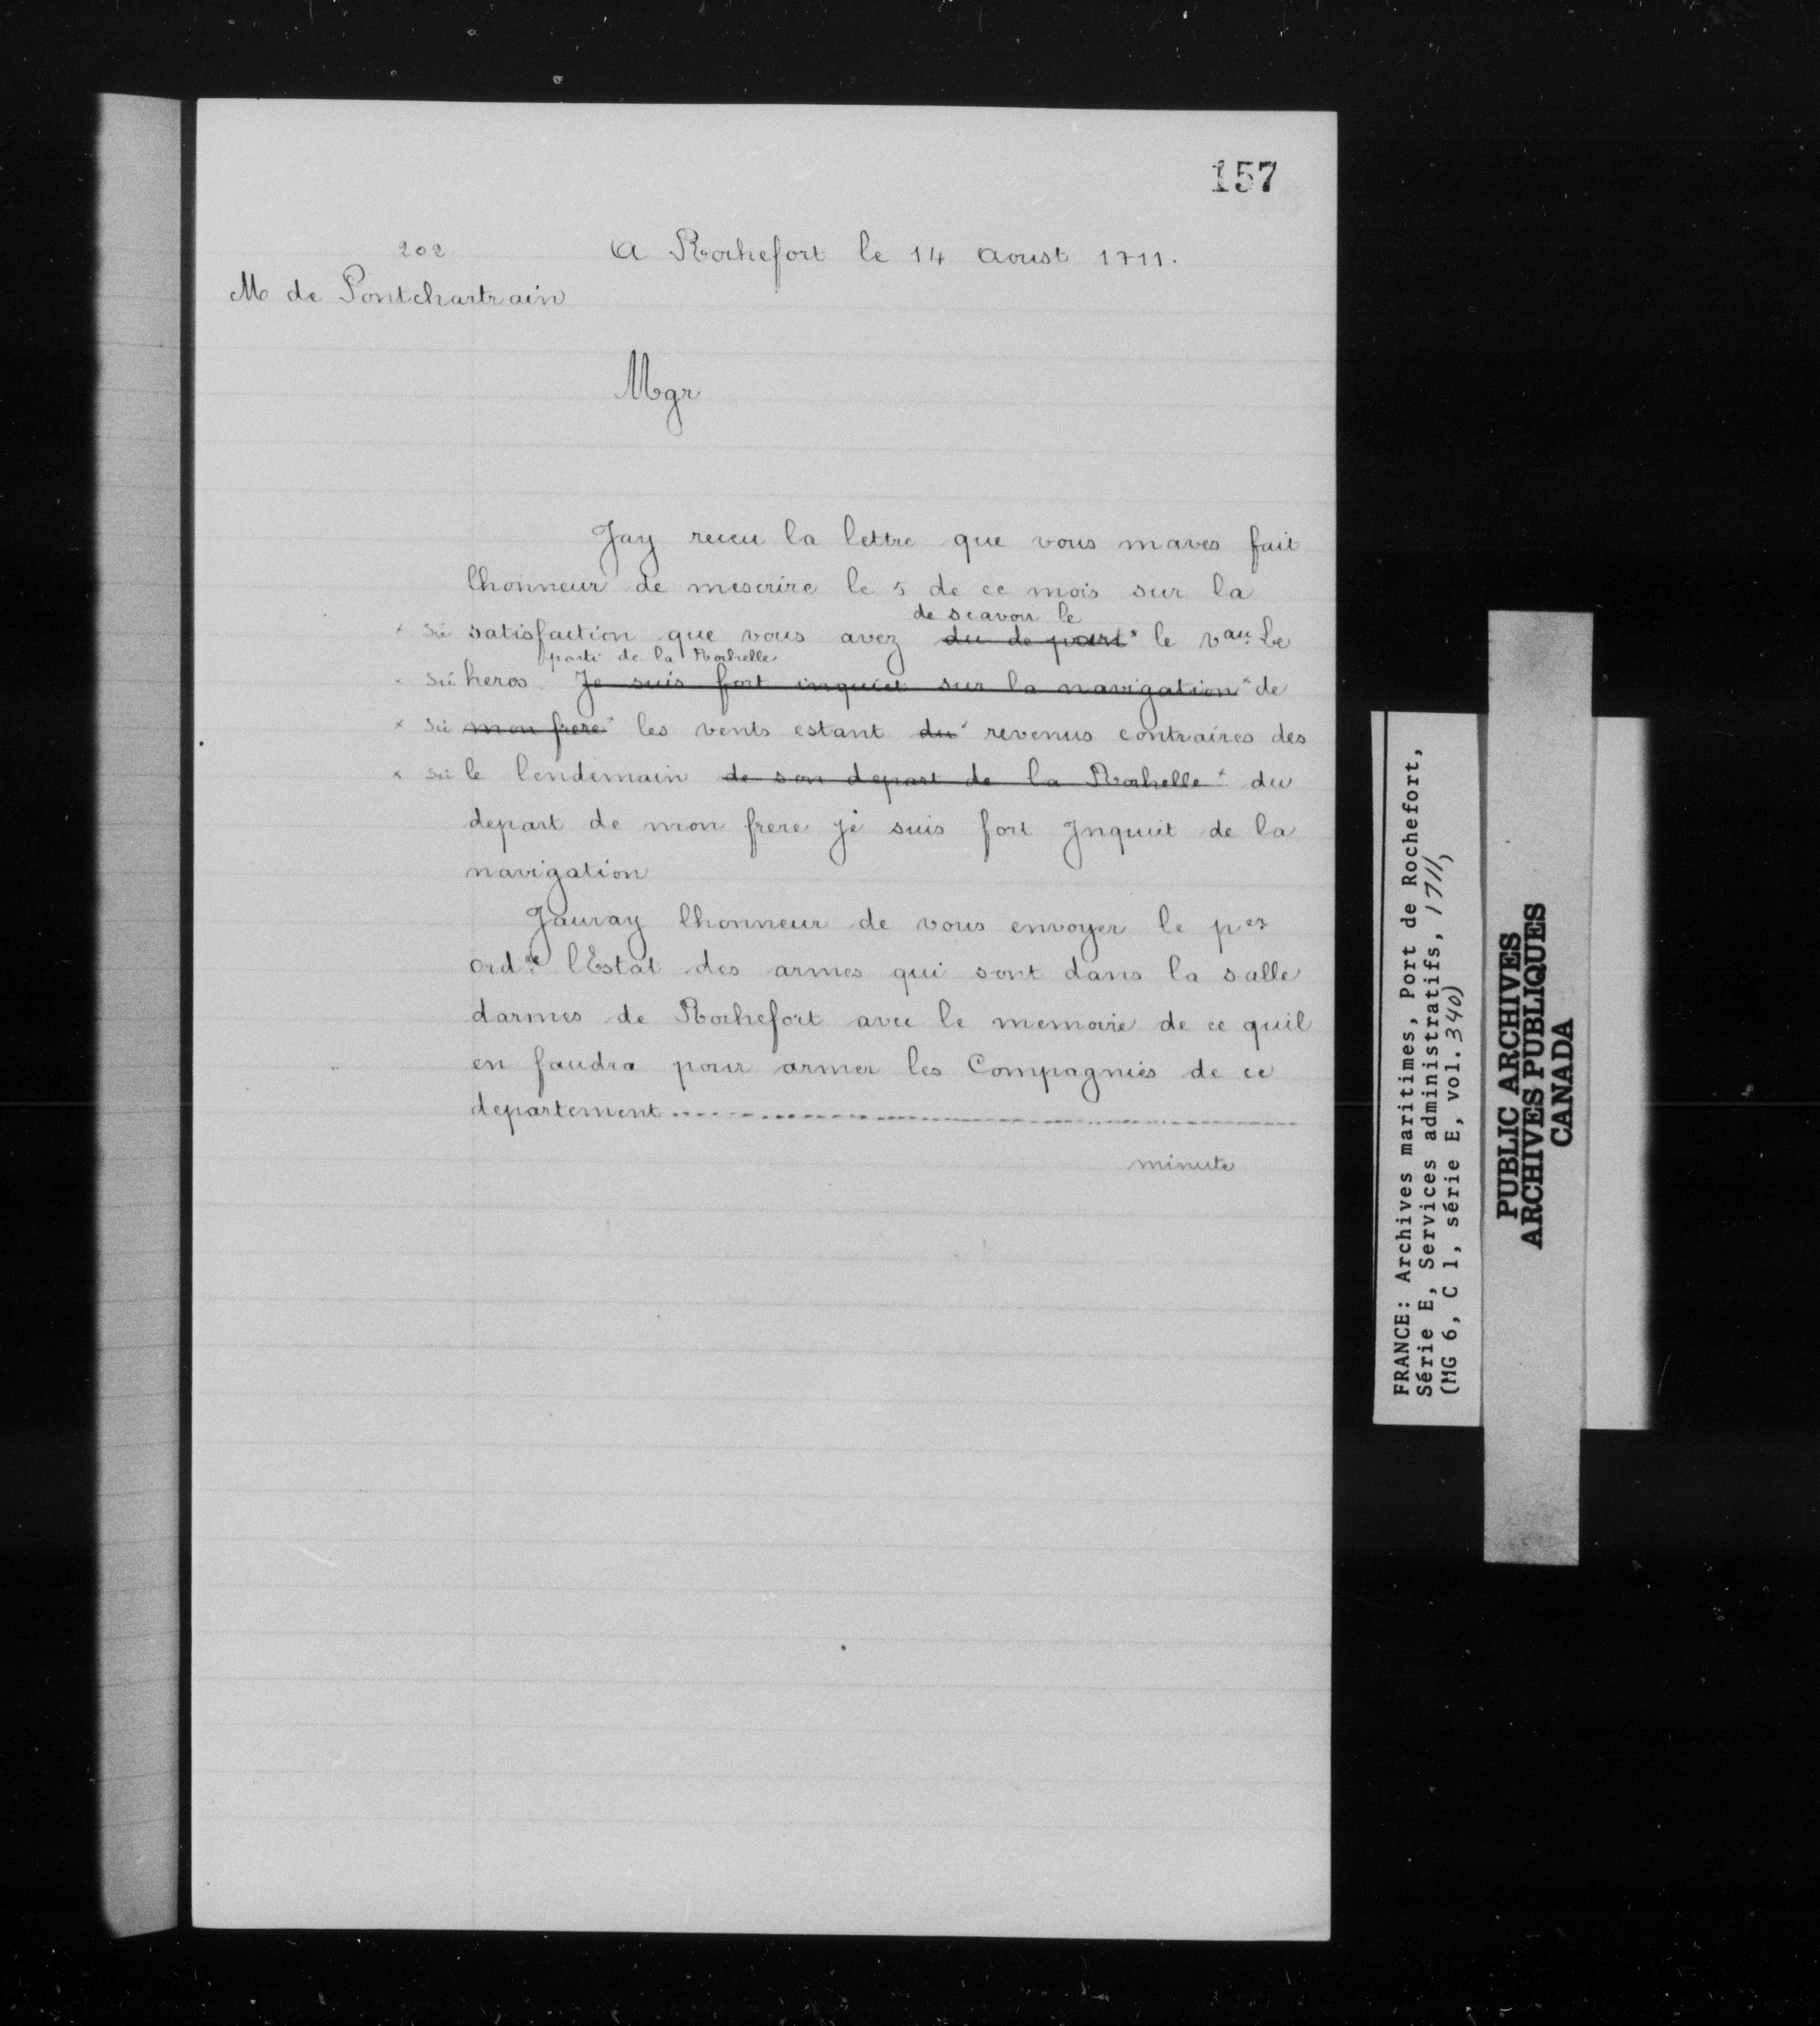 157
202.
A Rochefort le 14 Aoust 1711.
M de Pontchartrain
Mgr
Jay receu la lettre que vous maves fait
lhonneur de mescrire le 5 de ce mois sur la
de scavoir le
x sic satisfaction que vous avez du de part x le vau. Le
parti de la Rochelle
x sic heros. Je suis fort inquiet sur la navigation x de
x sic mon frere x les vents estant du x revenus contraires des
x sic le lendemain de son depart de la Rochelle x du
depart de mon frere je suis fort Jnquiet de la
navigation
Jauray lhonneur de vous envoyer le per
ordre lEstat des armes qui sont dans la salle
darmes de Rochefort avec le memoire de ce quil
en faudra pour armer les Compagnies de ce
departement
minute
FRANCE: Archives maritimes, Port de Rochefort,
Série E, Services administratifs, 1711,
(MG 6, C 1, série E, vol. 340)
PUBLIC ARCHIVES
ARCHIVES PUBLIQUES
CANADA